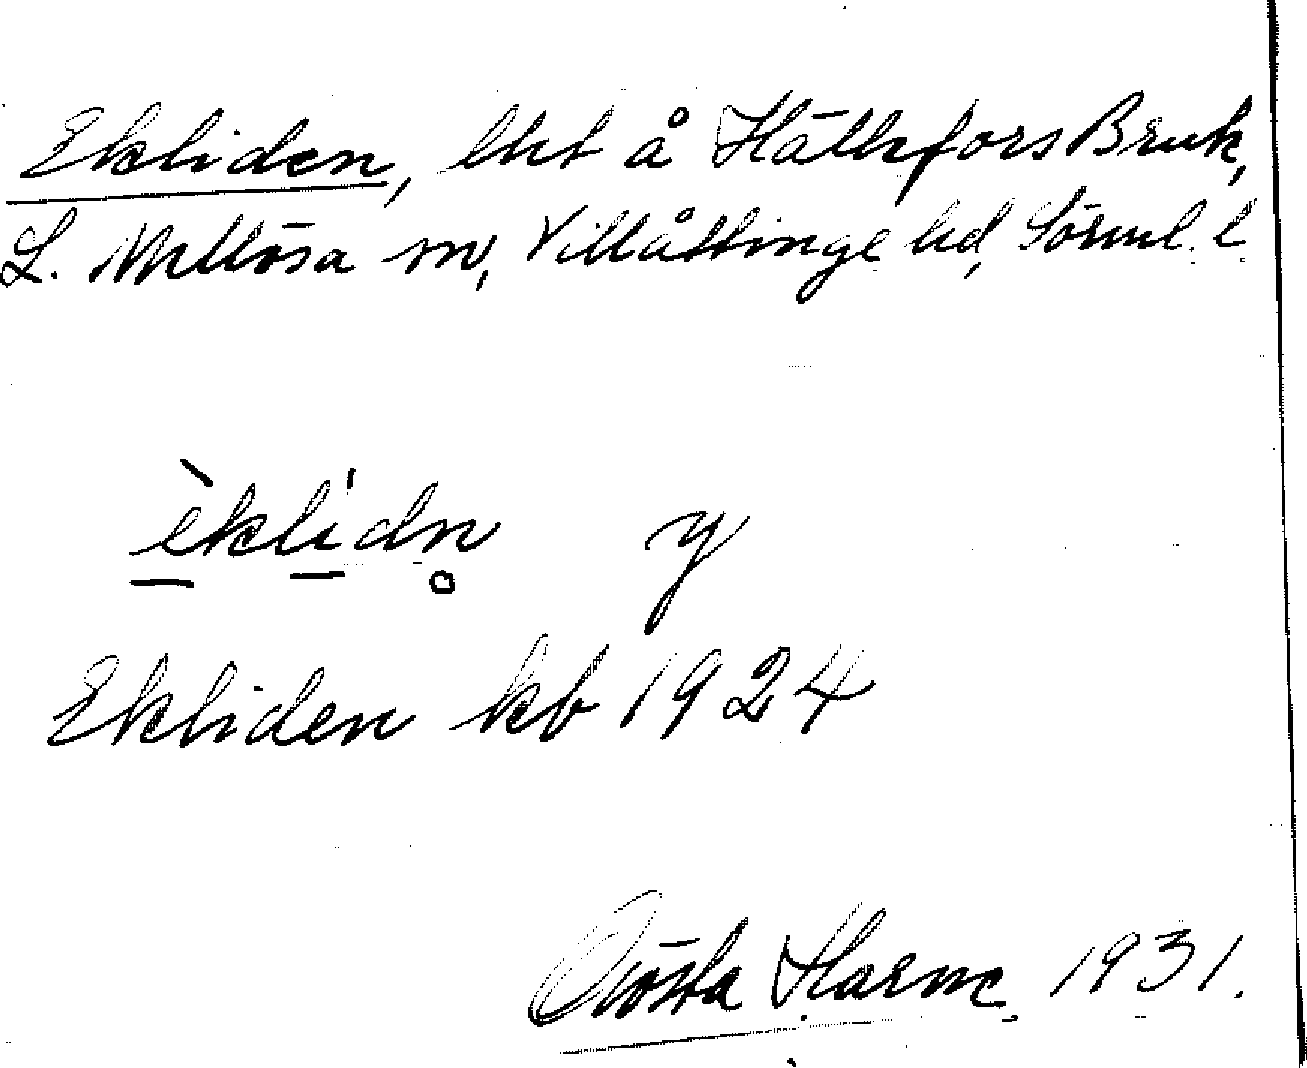 Ekliden, lht å Hälleforsbruk,
L. Mellösa sn, Villåttinge hd, Sörml. l.
èklidn y
Ekliden kb 1924
Gösta Harne 1931.